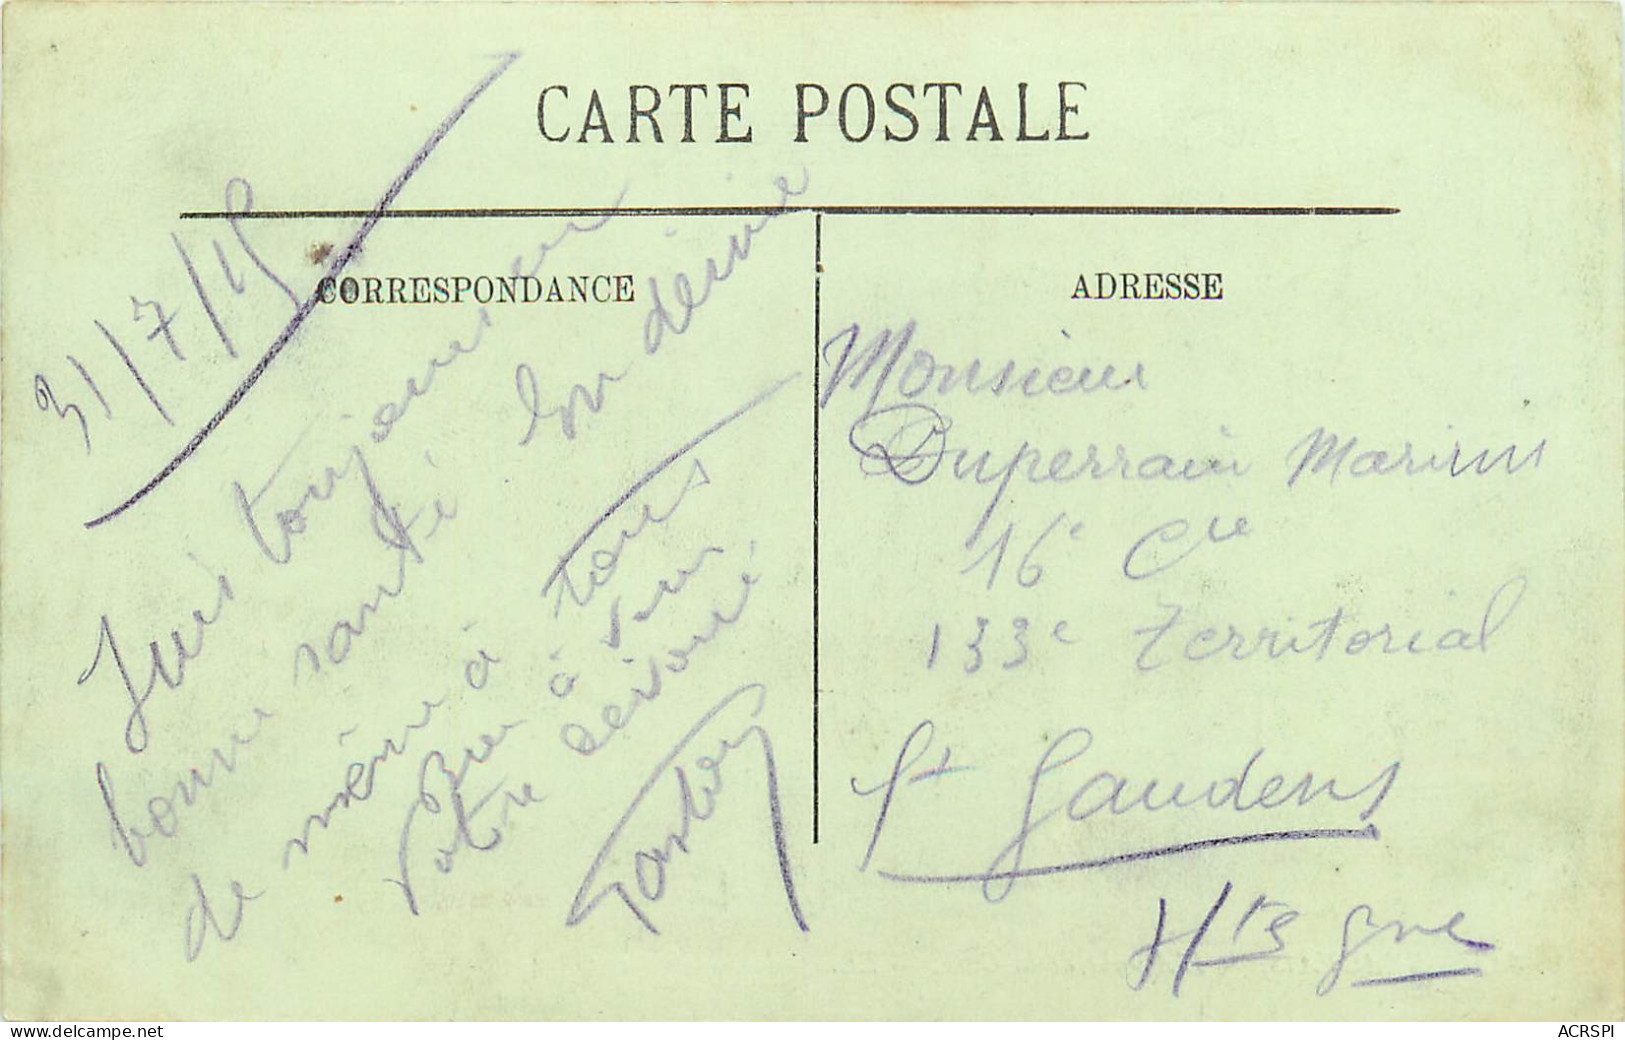 CARTE POSTALE
CORRESPONDANCE
ADRESSE
31/7/15
Suis toujours en
bonne santé. On désire
de même à tous
Bien à vous
Votre dévoué
Monsieur
Duperrain Marius
16e Cie
133e Territorial
St Gaudens
Hte Gne
www.delcampe.net
ACRSPI